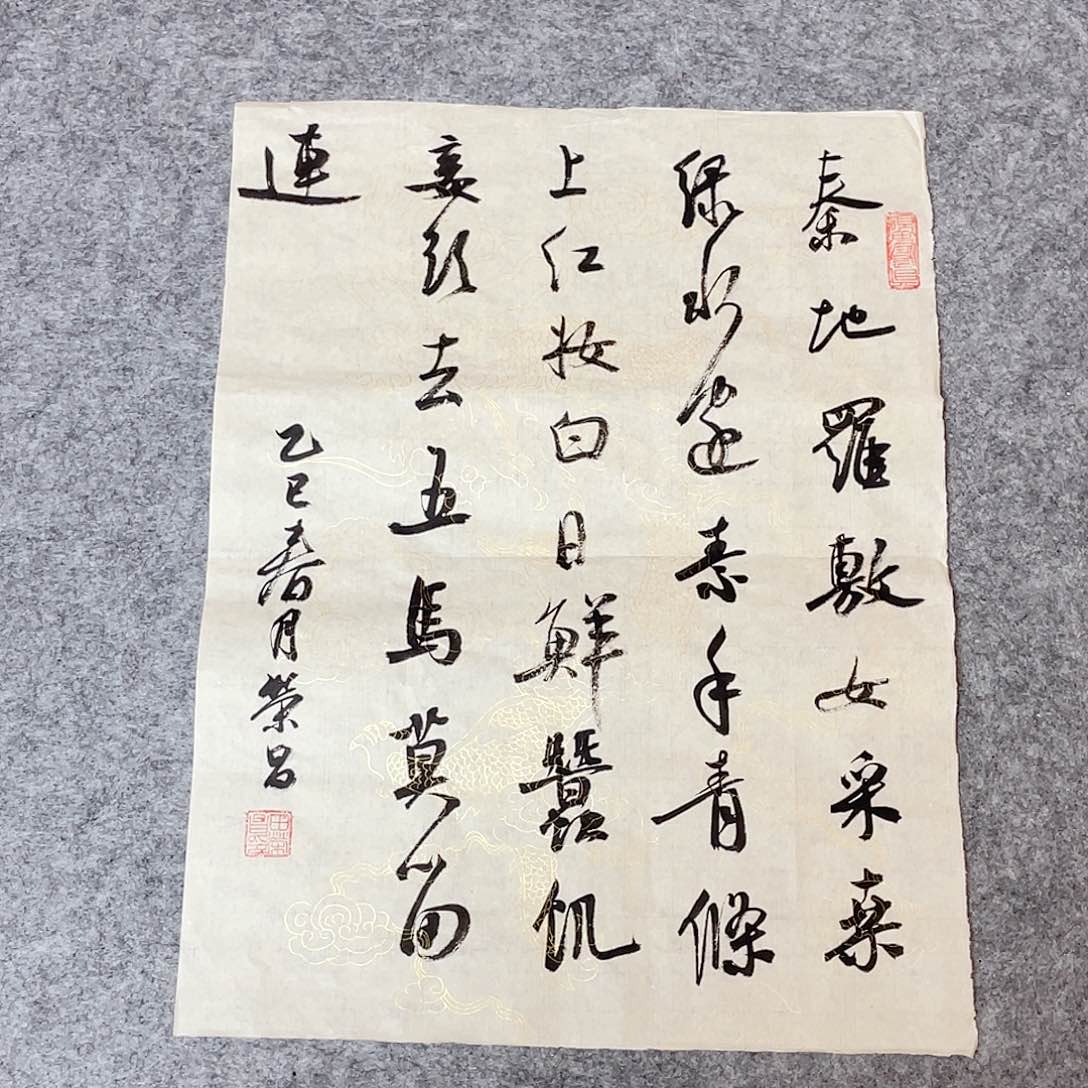 秦地羅敷女采桒
緑水邊素手青條
上红妝白日鮮蠶飢
妾欲去五馬莫留
連
乙巳春月榮昌